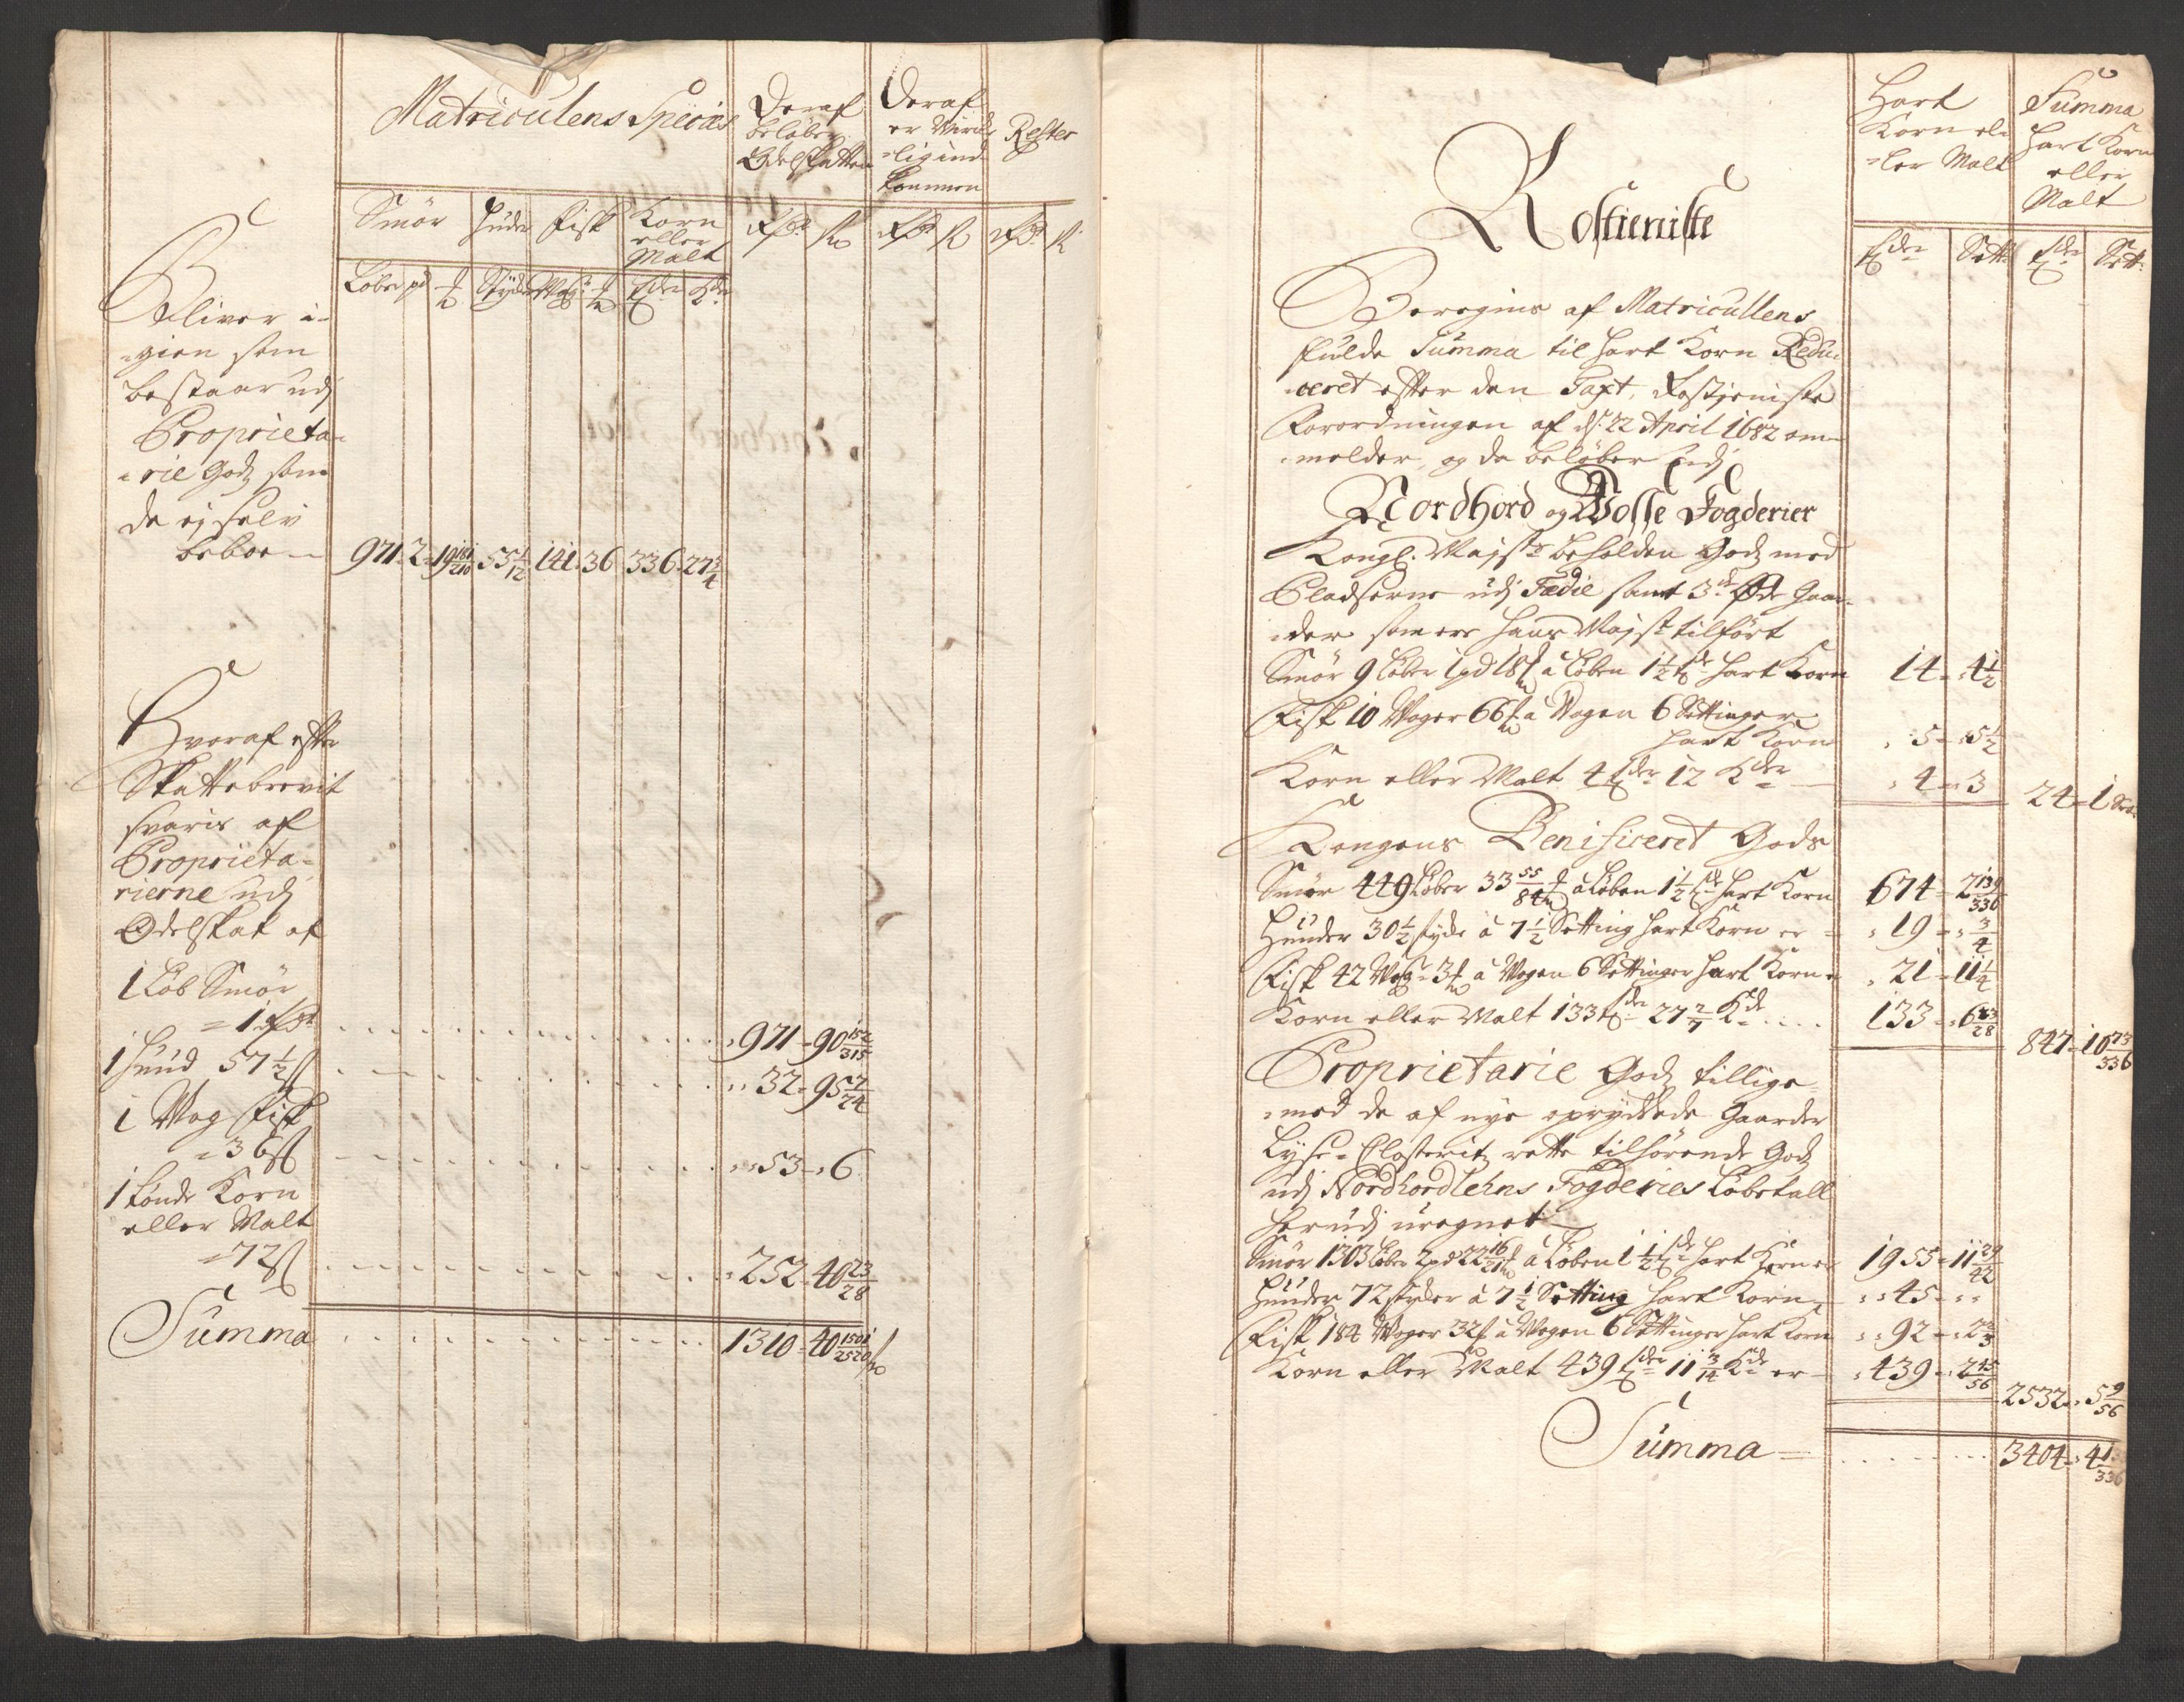 Matriculens Species
Deraf
beløber
Odelskatten
Deraf
er Würck-
-lig ind-
kommen
Rester
Smör
Huder
Fisk
Korn
eller
Malt
Rdr
s
Rdr
s
Rdr
s
Løber pd
Bliver i-
-gien som
bestaar udj
Proprieta-
-rie Godz som
de ej selv
beboe
971 - 2 - 19 181/210
55 1/12
141 - 36
336 - 27 3/4
Hvoraf efter
Skattebrevit
svaris af
Proprieta-
rierne udj
Odelskat af
1 Løb Smör
= 1 Rdr
971 - 90 152/315
1 Huud 57 1/2 s
32 - 95 7/24
1 Wog Fisk
= 36 s
53 - 6
1 tønde Korn
eller Malt
= 72 s
252 - 40 23/28
Summa
1310 - 40 1501/2520 s
Rostieniste
Hart
Korn el-
-ler Malt
Summa
Hart Korn
eller
Malt
Tdr
Sett:
Tdr
Sett:
Beregnes af Matricullens
fulde Summa til Hart Korn Redu-
-ceret efter den Taxt, Rostieniste
Forordningen af d: 22 April 1682 om-
-melder, og da beløber udj
Nordhord og Wosse Fogderier
Kongl. Majsts beholden Godz med
Pladserne udj Fædie samt 3de Øde Gaar-
-der som ere Hans Majst tilført
Smör 9 Løber 1 pd 18 a Løben 1 1/2 Tde Hart Korn
14 - 4 1/2
Fisk 10 Woger 66 a Wogen 6 Settinger
Hart Korn
5 - 5 1/2
Korn eller Malt 4 Tder 12 Kder
4 - 3
24 - 1
Kongens Benificeret Gods
Smör 449 Løber 33 55/84 a Løben 1 1/2 Tde Hart Korn
674 - 2 139/336
Huuder 30 1/2 styde a 7 1/2 Setting Hart Korn er
19 - 3/4
Fisk 42 Wog - 3 a Wogen 6 Settinger Hart Korn
21 - 11 1/4
Korn eller Malt 133 Tder 27 2/7 Kde
133 - 6 23/28
847 - 10 73/336
Proprietarie Godz tillige-
-med de af nye opryddede Gaarder
Lyse - Closteritz rette tilhørende Godz
udj Nordhordlehns Fogderies Løbetall
herudj uregnet
Smör 1303 Løber 2 pd 22 16/21 a Løben 1 1/2 Tde Hart Korn er
1955 - 11 29/42
Huuder 72 styder a 7 1/2 Setting Hart Korn
45 -
Fisk 184 Woger 32 a Wogen 6 Settinger Hart Korn
92 - 2 2/3
Korn eller Malt 439 Tder 11 3/14 Kde er
439 - 2 45/56
2532 - 5 9/56
Summa
3404 - 4